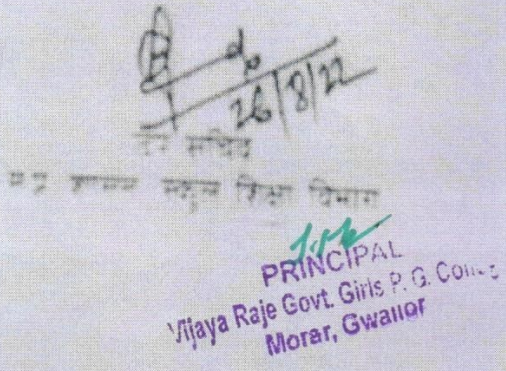 26/8/22
उप सचिव
म.प्र. शासन स्कूल शिक्षा विभाग
PRINCIPAL
Vijaya Raje Govt. Girls P. G. College
Morar, Gwalior